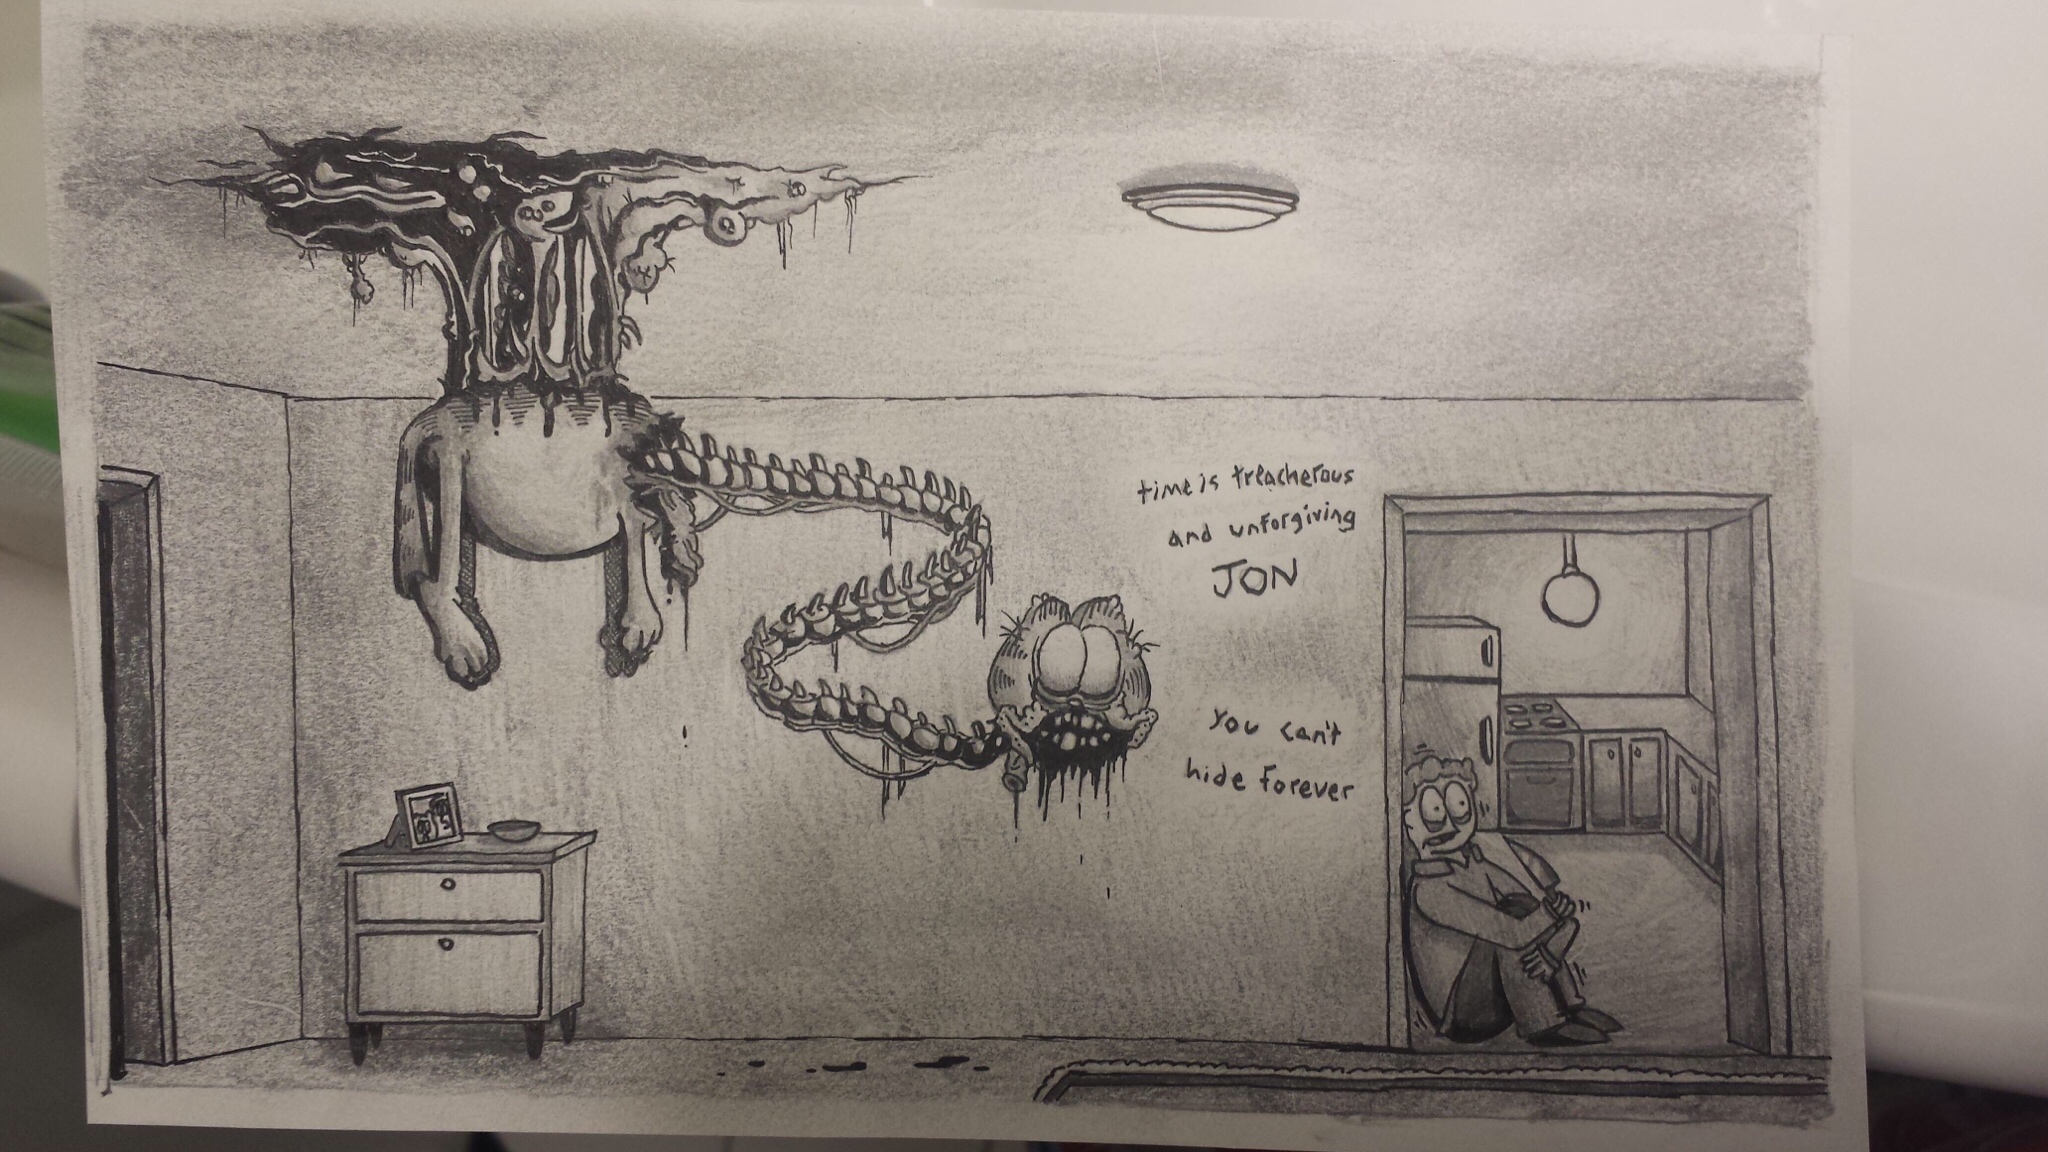 time is treacherous
and unforgiving
JON
You can't
hide forever